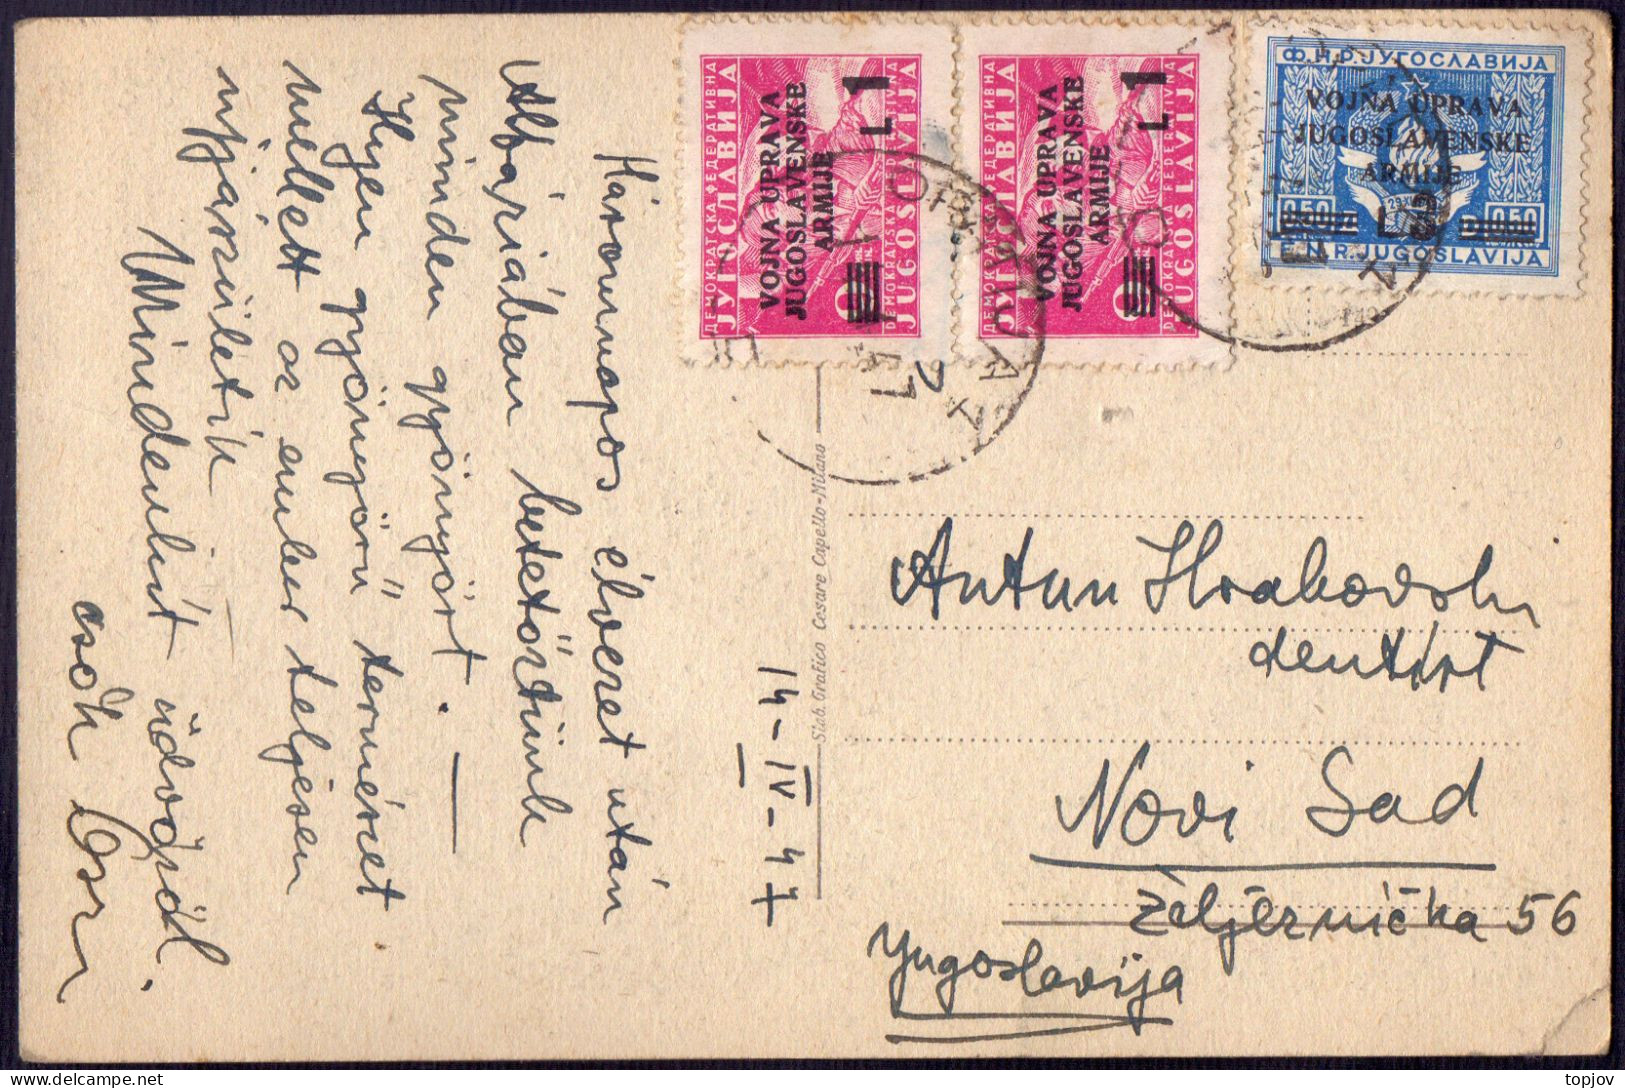 Háromnapos élvezet után
Abbáziában betetőztünk
minden gyönyört. —
Ilyen gyönyörű természet
mellett az ember teljesen
ujjászületik
Mindenkit üdvözöl.
csók
14-IV-47
Stab. Grafico Cesare Capello-Milano
ДЕМОКРАТСКА ФЕДЕРАТИВНА
ЈУГОСЛАВИЈА
VOJNA UPRAVA
JUGOSLAVENSKE
ARMIJE
L 1
DEMOKRATSKA FEDERATIVNA
JUGOSLAVIJA
ДЕМОКРАТСКА ФЕДЕРАТИВНА
ЈУГОСЛАВИЈА
VOJNA UPRAVA
JUGOSLAVENSKE
ARMIJE
L 1
DEMOKRATSKA FEDERATIVNA
JUGOSLAVIJA
Ф.Н.Р. ЈУГОСЛАВИЈА
VOJNA UPRAVA
JUGOSLAVENSKE
ARMIJE
0.50 L 3 0.50
F.N.R. JUGOSLAVIJA
OPATIJA
Antun Hrabovski
dentist
Novi Sad
Željeznička 56
Yugoslavija
topjov